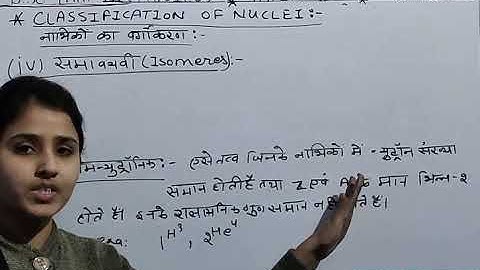 * CLASSIFICATION OF NUCLEI:-
नाभिकों का वर्गीकरण:-
(iv) समावयवी (Isomeres):-
न्यूट्रॉनिक:- ऐसे तत्व जिनके नाभिकों में न्यूट्रॉन संख्या
समान होती है तथा Z एवं मान भिन्न-२
होते है। इनके रासायनिक गुण समान है।
1H³, 2He⁴